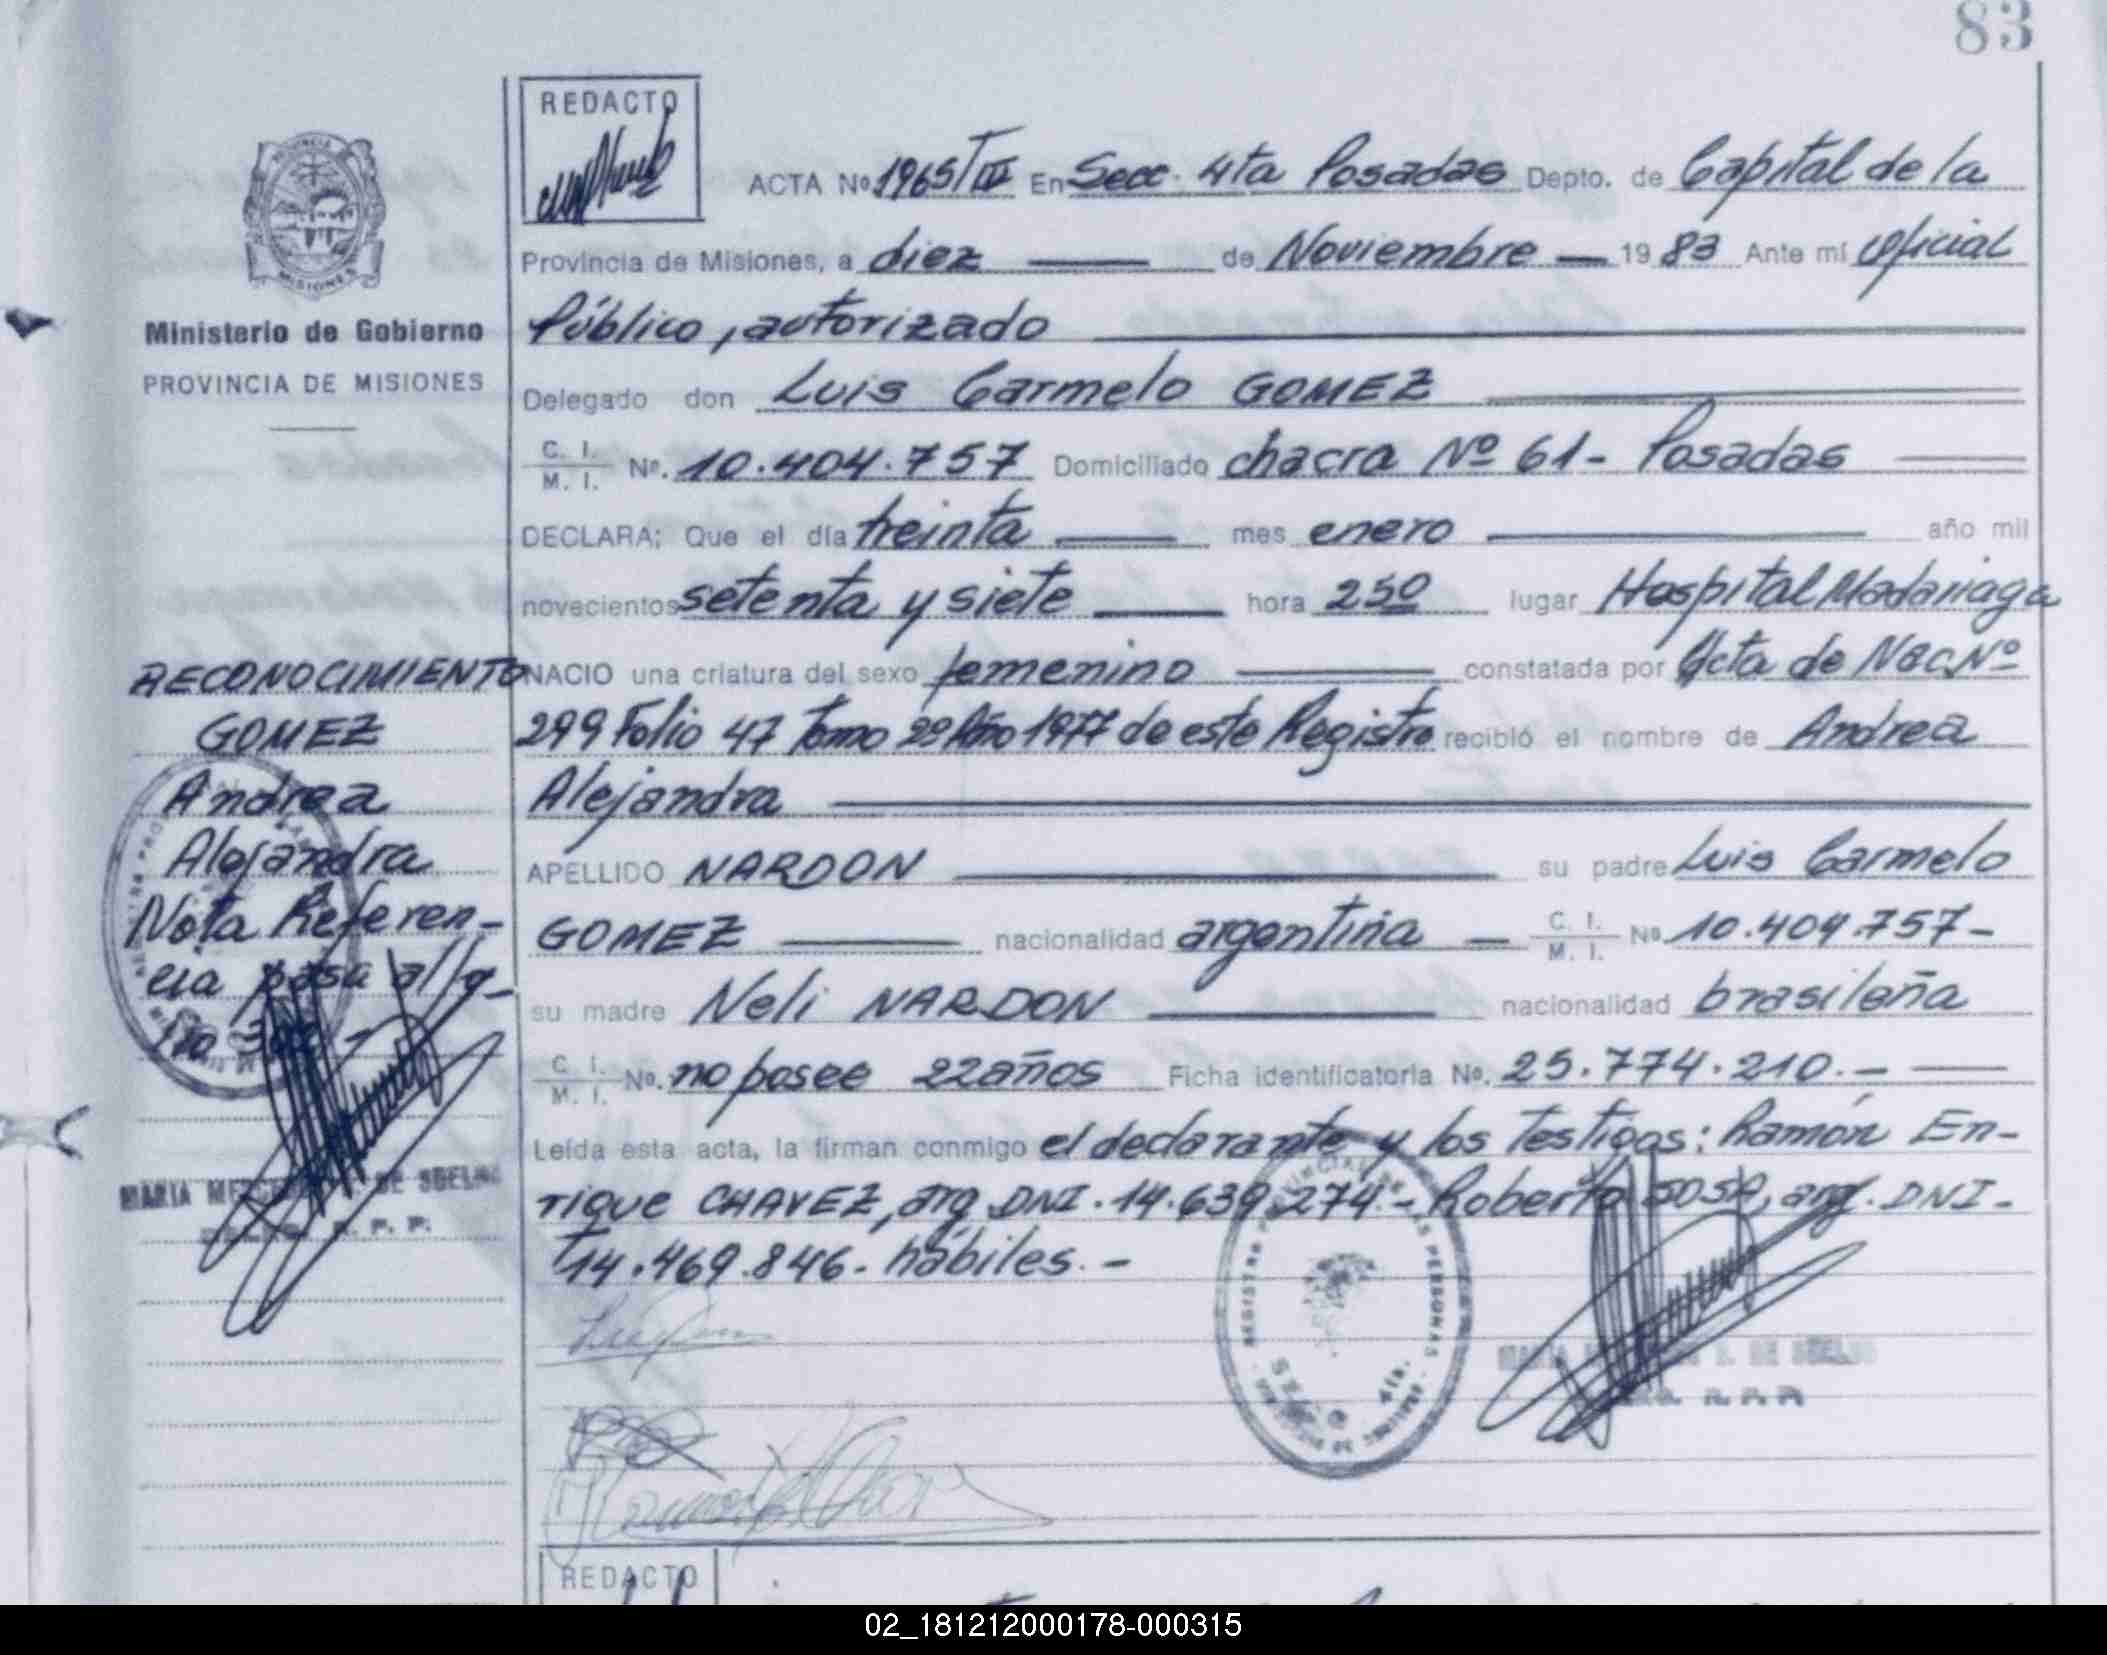 83
REDACTO
ACTA Nº 1965/III En Secc. 4ta Posadas Depto. de Capital de la
Provincia de Misiones, a diez de Noviembre 1983 Ante mí Oficial
Público, autorizado
Delegado don Luis Carmelo GOMEZ
C. I. / M. I. Nº. 10.404.757 Domiciliado chacra Nº 61- Posadas
DECLARA; Que el día treinta mes enero año mil
novecientos setenta y siete hora 250 lugar Hospital Madariaga
NACIO una criatura del sexo femenino constatada por Acta de Nac Nº
299 Folio 47 Tomo 2º Año 1977 de este Registro recibió el nombre de Andrea
Alejandra
APELLIDO NARDON su padre Luis Carmelo
GOMEZ nacionalidad argentina C. I. / M. I. Nº 10.404.757-
su madre Neli NARDON nacionalidad brasileña
C. I. / M. I. Nº. no posee 22 años Ficha identificatoria Nº. 25.774.210.-
Leída esta acta, la firman conmigo el declarante y los testigos: Ramón En-
rique CHAVEZ, arg. DNI. 14.639.274.- Roberto SOSA, arg. DNI-
14.469.846. hábiles.-
PROVINCIA
MISIONES
Ministerio de Gobierno
PROVINCIA DE MISIONES
RECONOCIMIENTO
GOMEZ
Andrea
Alejandra
Nota Referen-
cia pasa al fo-
lio
MARIA DE
R. P. P.
REGISTRO PROVINCIAL DE LAS PERSONAS
4ta.
MARIA DE
R. P. P.
REDACTO
02_181212000178-000315